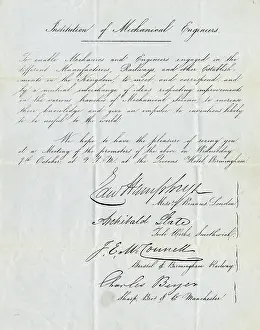 Institution of Mechanical Engineers
To enable Mechanics and Engineers engaged in the
different Manufactories, Railways and other Establish-
ments in the Kingdom, to meet and correspond, and
by a mutual interchange of ideas respecting improvements
in the various branches of Mechanical Science, to increase
their knowledge and give an impulse to inventions likely
to be useful to the world
We hope to have the pleasure of seeing you
at a Meeting of the promoters of the above on Wednesday
7th October, at 2 P.M. at the Queens Hotel, Birmingham
Edw Humphrys
Messrs Rennies London
Archibald Slate
Works,
J. E. McConnell
Bristol & Birmingham Railway
Charles Beyer
Sharp Bros & Co Manchester